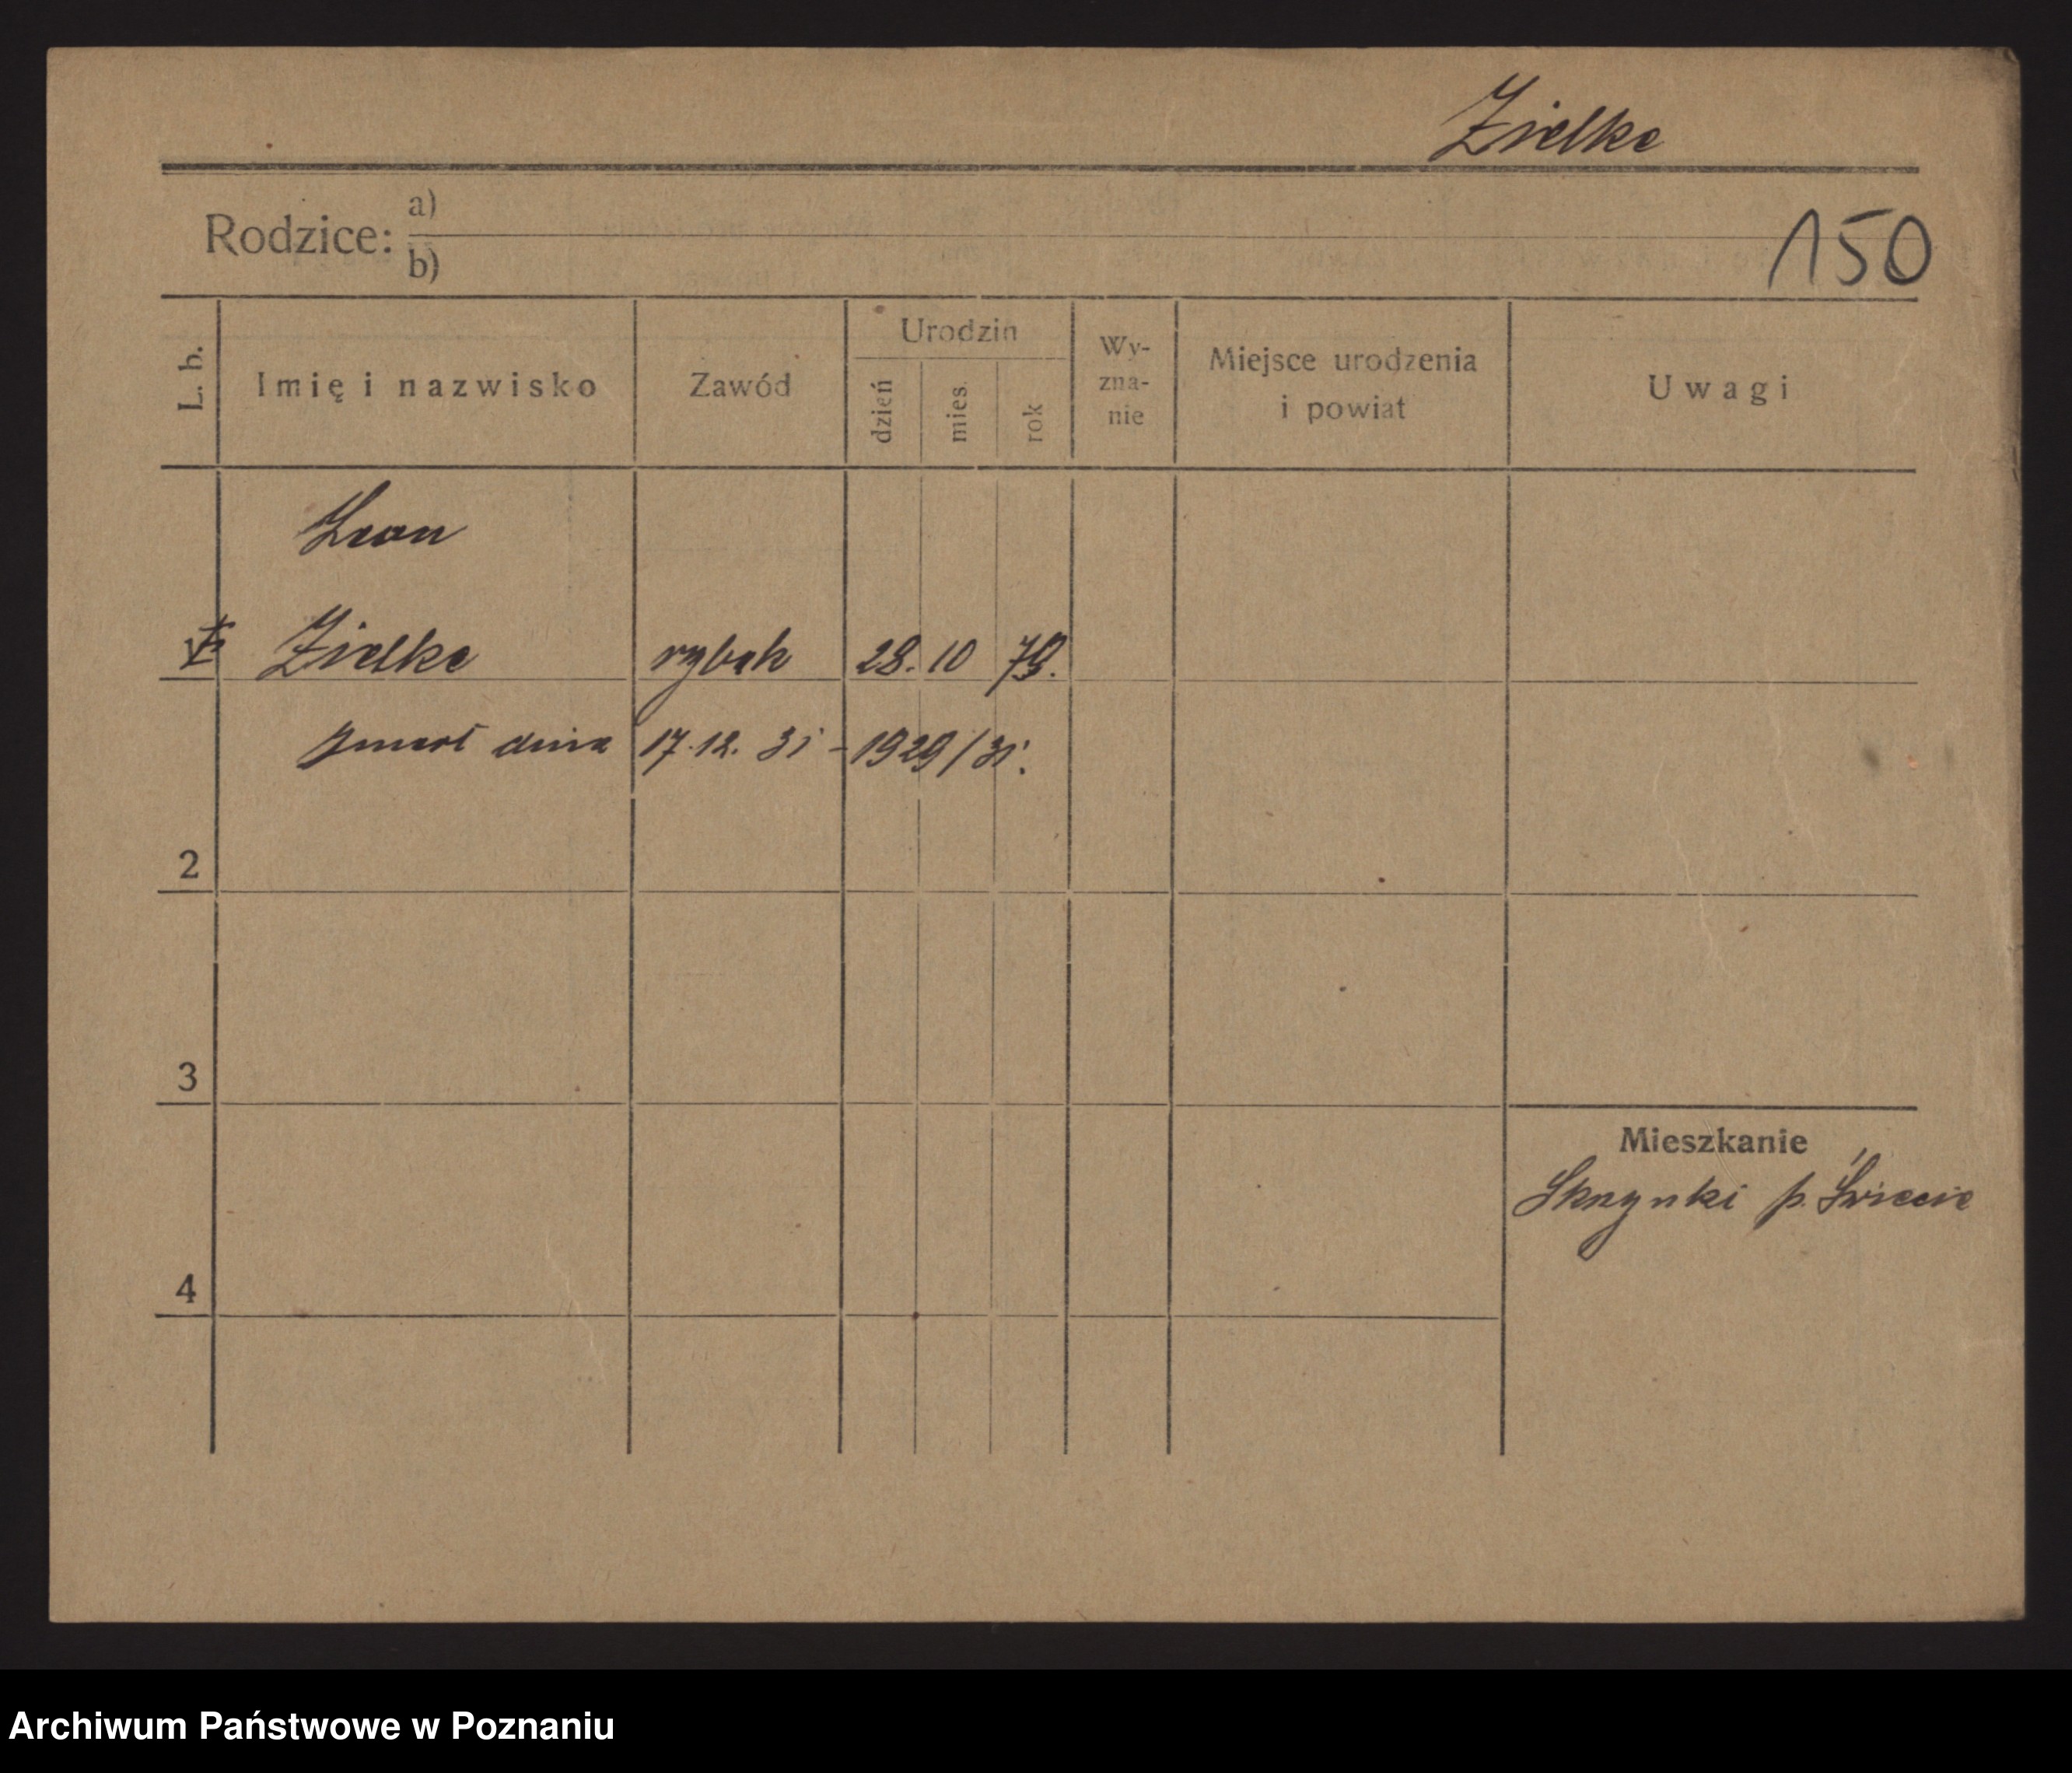 Zielke
Rodzice: a)
b)
150
L. b.
Imię i nazwisko
Zawód
Urodzin
dzień
mies.
rok
Wy-
zna-
nie
Miejsce urodzenia
i powiat
Uwagi
Leon
Zielke rybak 28. 10
zmarł dnia 17.12. 31 - 1929/31.
2
3
4
Mieszkanie
Skrzynki p. Świecie
Archiwum Państwowe w Poznaniu